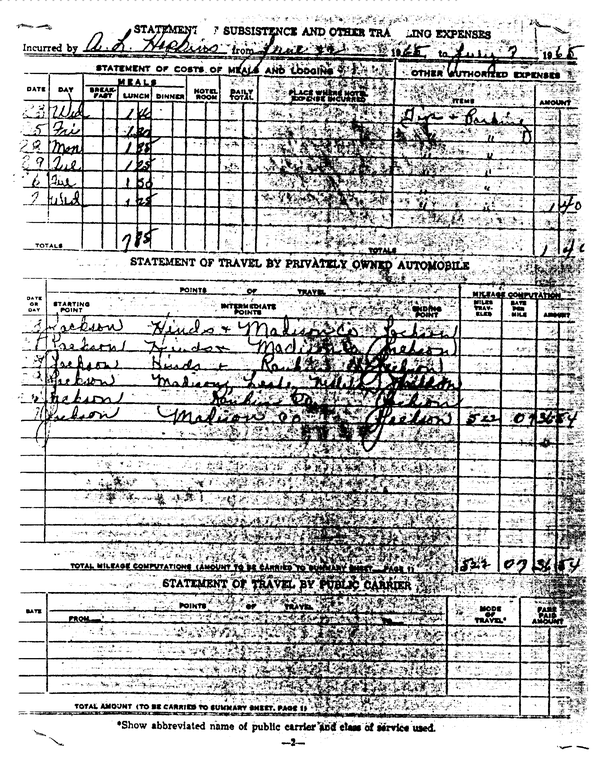 STATEMENT SUBSISTENCE AND OTHER EXPENSES
Incurred by A. L. Hopkins from June 1965 to July 7 1965
STATEMENT OF COSTS OF MEALS AND LODGING OTHER AUTHORIZED EXPENSES
DATE DAY MEALS HOTEL ROOM DAILY TOTAL PLACE WHERE EXPENSE INCURRED ITEMS AMOUNT
BREAKFAST LUNCH DINNER
Wed Tips + Parking
5 Fri " "
28 Mon " "
29 Tue 1 25 " "
6 Tue 1 50 " "
7 Wed 1 25 " " 1 40
TOTALS 7 85 TOTALS 1 40
STATEMENT OF TRAVEL BY PRIVATELY OWNED AUTOMOBILE
DATE OR DAY POINTS OF TRAVEL MILEAGE COMPUTATION
STARTING POINT INTERMEDIATE POINTS ENDING POINT MILES TRAVELED RATE PER MILE AMOUNT
Jackson Hinds + Madison Co Jackson
Jackson Hinds + Madison Co Jackson
Jackson Hinds + Jackson
Jackson Madison, Leake,
Jackson Rankin Co Jackson
Jackson Madison Co Jackson 522 07 36 54
TOTAL MILEAGE COMPUTATIONS (AMOUNT TO BE CARRIED TO SUMMARY SHEET, PAGE 1) 522 07 36 54
STATEMENT OF TRAVEL BY PUBLIC CARRIER
DATE POINTS OF TRAVEL MODE OF TRAVEL* FARE PAID AMOUNT
FROM TO
TOTAL AMOUNT (TO BE CARRIED TO SUMMARY SHEET, PAGE 1)
*Show abbreviated name of public carrier and class of service used.
—2—